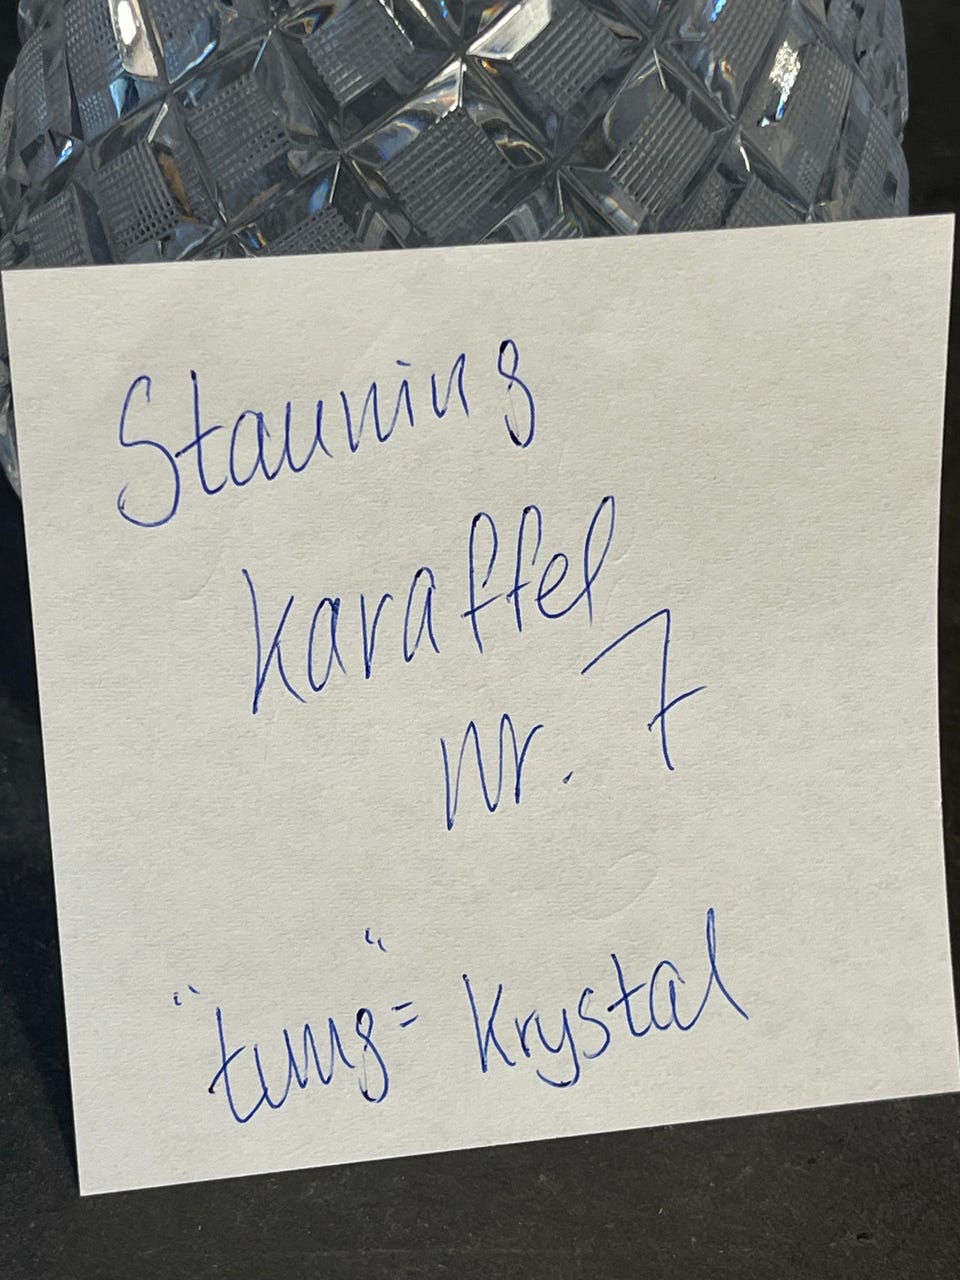 Stauning
karaffel
nr. 7
"tung" = Krystal